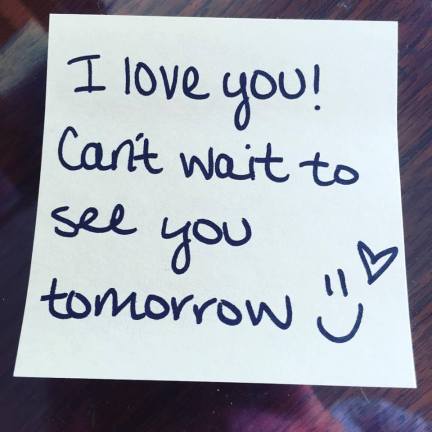 I love you!
Can't wait to
see you
tomorrow